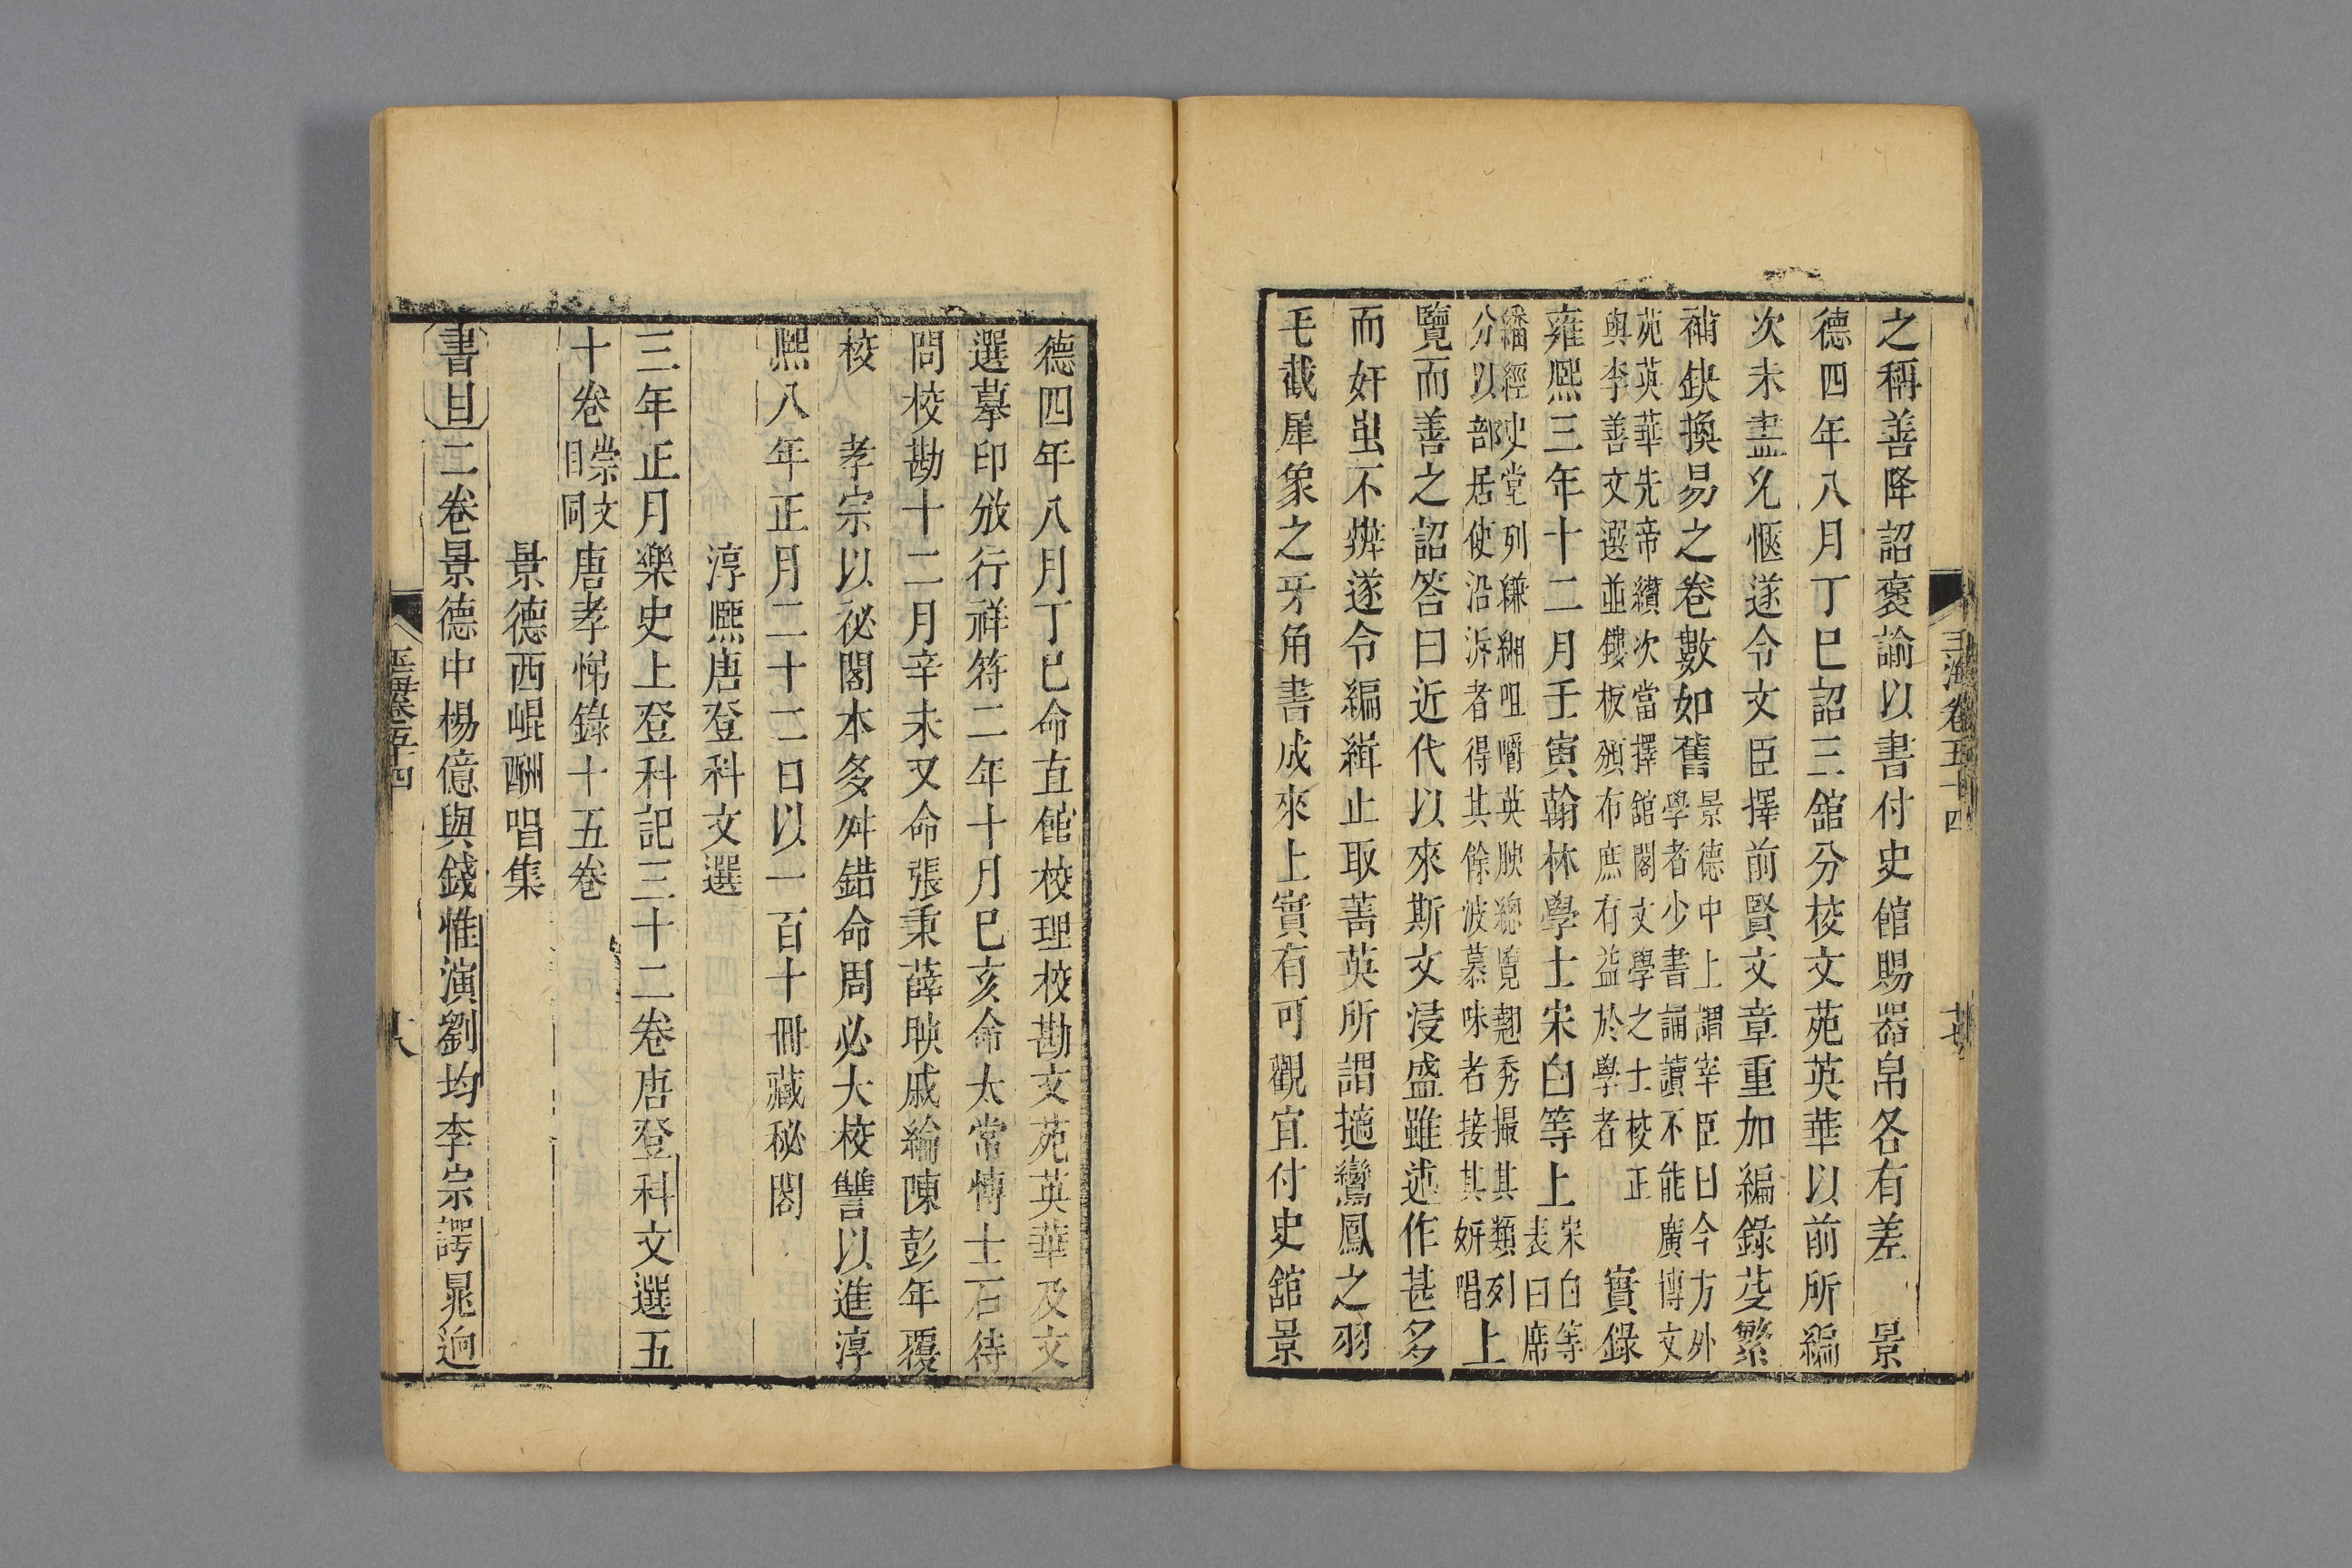 玉海卷五十四
之稱善降詔褒諭以書付史館賜器帛各有差　景
德四年八月丁巳詔三舘分校文苑英華以前所編
次未盡允愜遂令文臣擇前賢文章重加編錄芟繁
補缺換易之卷數如舊景德中上謂宰臣曰今方外學者少書誦讀不能廣博文
苑英華先帝纘次當擇舘閣文學之士校正與李善文選並鏤板頒布庶有益於學者實錄
雍熈三年十二月壬寅翰林學士宋白等上宋白等表曰席
繙經史堂列縑緗咀嚼英腴緫覧翹秀撮其類列分以部居使沿泝者得其餘波慕味者接其妍唱上
覽而善之詔答曰近代以來斯文浸盛雖述作甚多
而妍蚩不辨遂令編緝止取菁英所謂擿鸞鳳之羽
毛截犀象之牙角書成來上實有可觀宜付史舘景
德四年八月丁巳命直館校理校勘文苑英華及文
選摹印放行祥符二年十月巳亥命太常博士石待
問校勘十二月辛未又命張秉薛映戚綸陳彭年覆
校　孝宗以祕閣本多舛錯命周必大校讐以進淳
熈八年正月二十二日以一百十冊藏秘閣
淳熈唐登科文選
三年正月樂史上登科記三十二卷唐登科文選五
十卷崇文目同唐孝悌錄十五卷
景德西崐酬唱集
書目二卷景德中楊億與錢惟演劉均李宗諤晁逈
玉海卷五十四